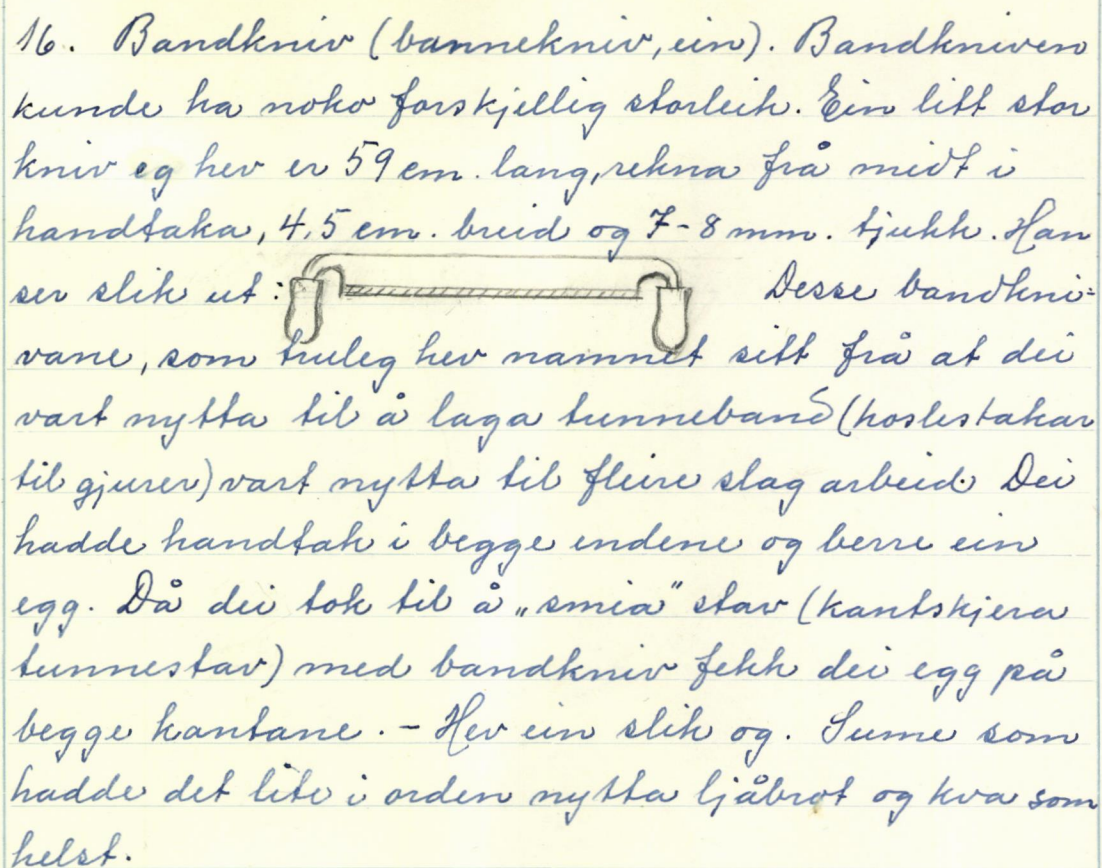 16. Bandkniv (bannekniv, ein). Bandkniven
kunde ha noko forskjellig storleik. Ein litt stor
kniv eg hev er 59 cm. lang, rekna frå midt i
handtaka, 4,5 cm. breid og 7-8 mm. tjukk. Han
ser slik ut: Desse bandkni-
vane, som truleg hev namnet sitt frå at dei
vart nytta til å laga tunneband (hoslestakar
til gjurer) vart nytta til fleire slag arbeid. Dei
hadde handtak i begge endene og berre ein
egg. Då dei tok til å „smia" stav (kantskjera
tunnestav) med bandkniv fekk dei egg på
begge kantane. - Hev ein slik og. Sume som
hadde det lite i orden nytta ljåbrot og kva som
helst.